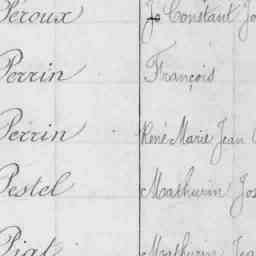 Péroux Constant
Perrin François
Perrin René Marie Jean
Pestel Mathurin
Piat Mathurin